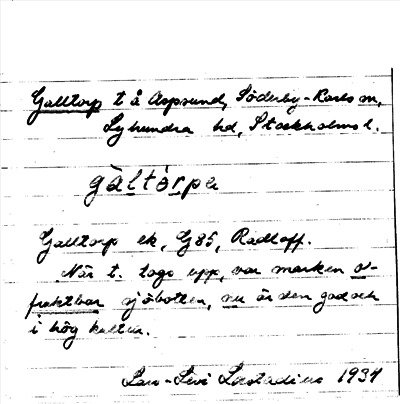 Galltorp t å Aspsund, Söderby-Karls sn,
Lyhundra hd, Stockholms l.
gàltórpa
Galltorp ek, G85, Radloff.
När t. togs upp, var marken o-
fruktbar sjöbotten, nu är den god och
i hög kultur.
Lars-Levi Læstadius 1934